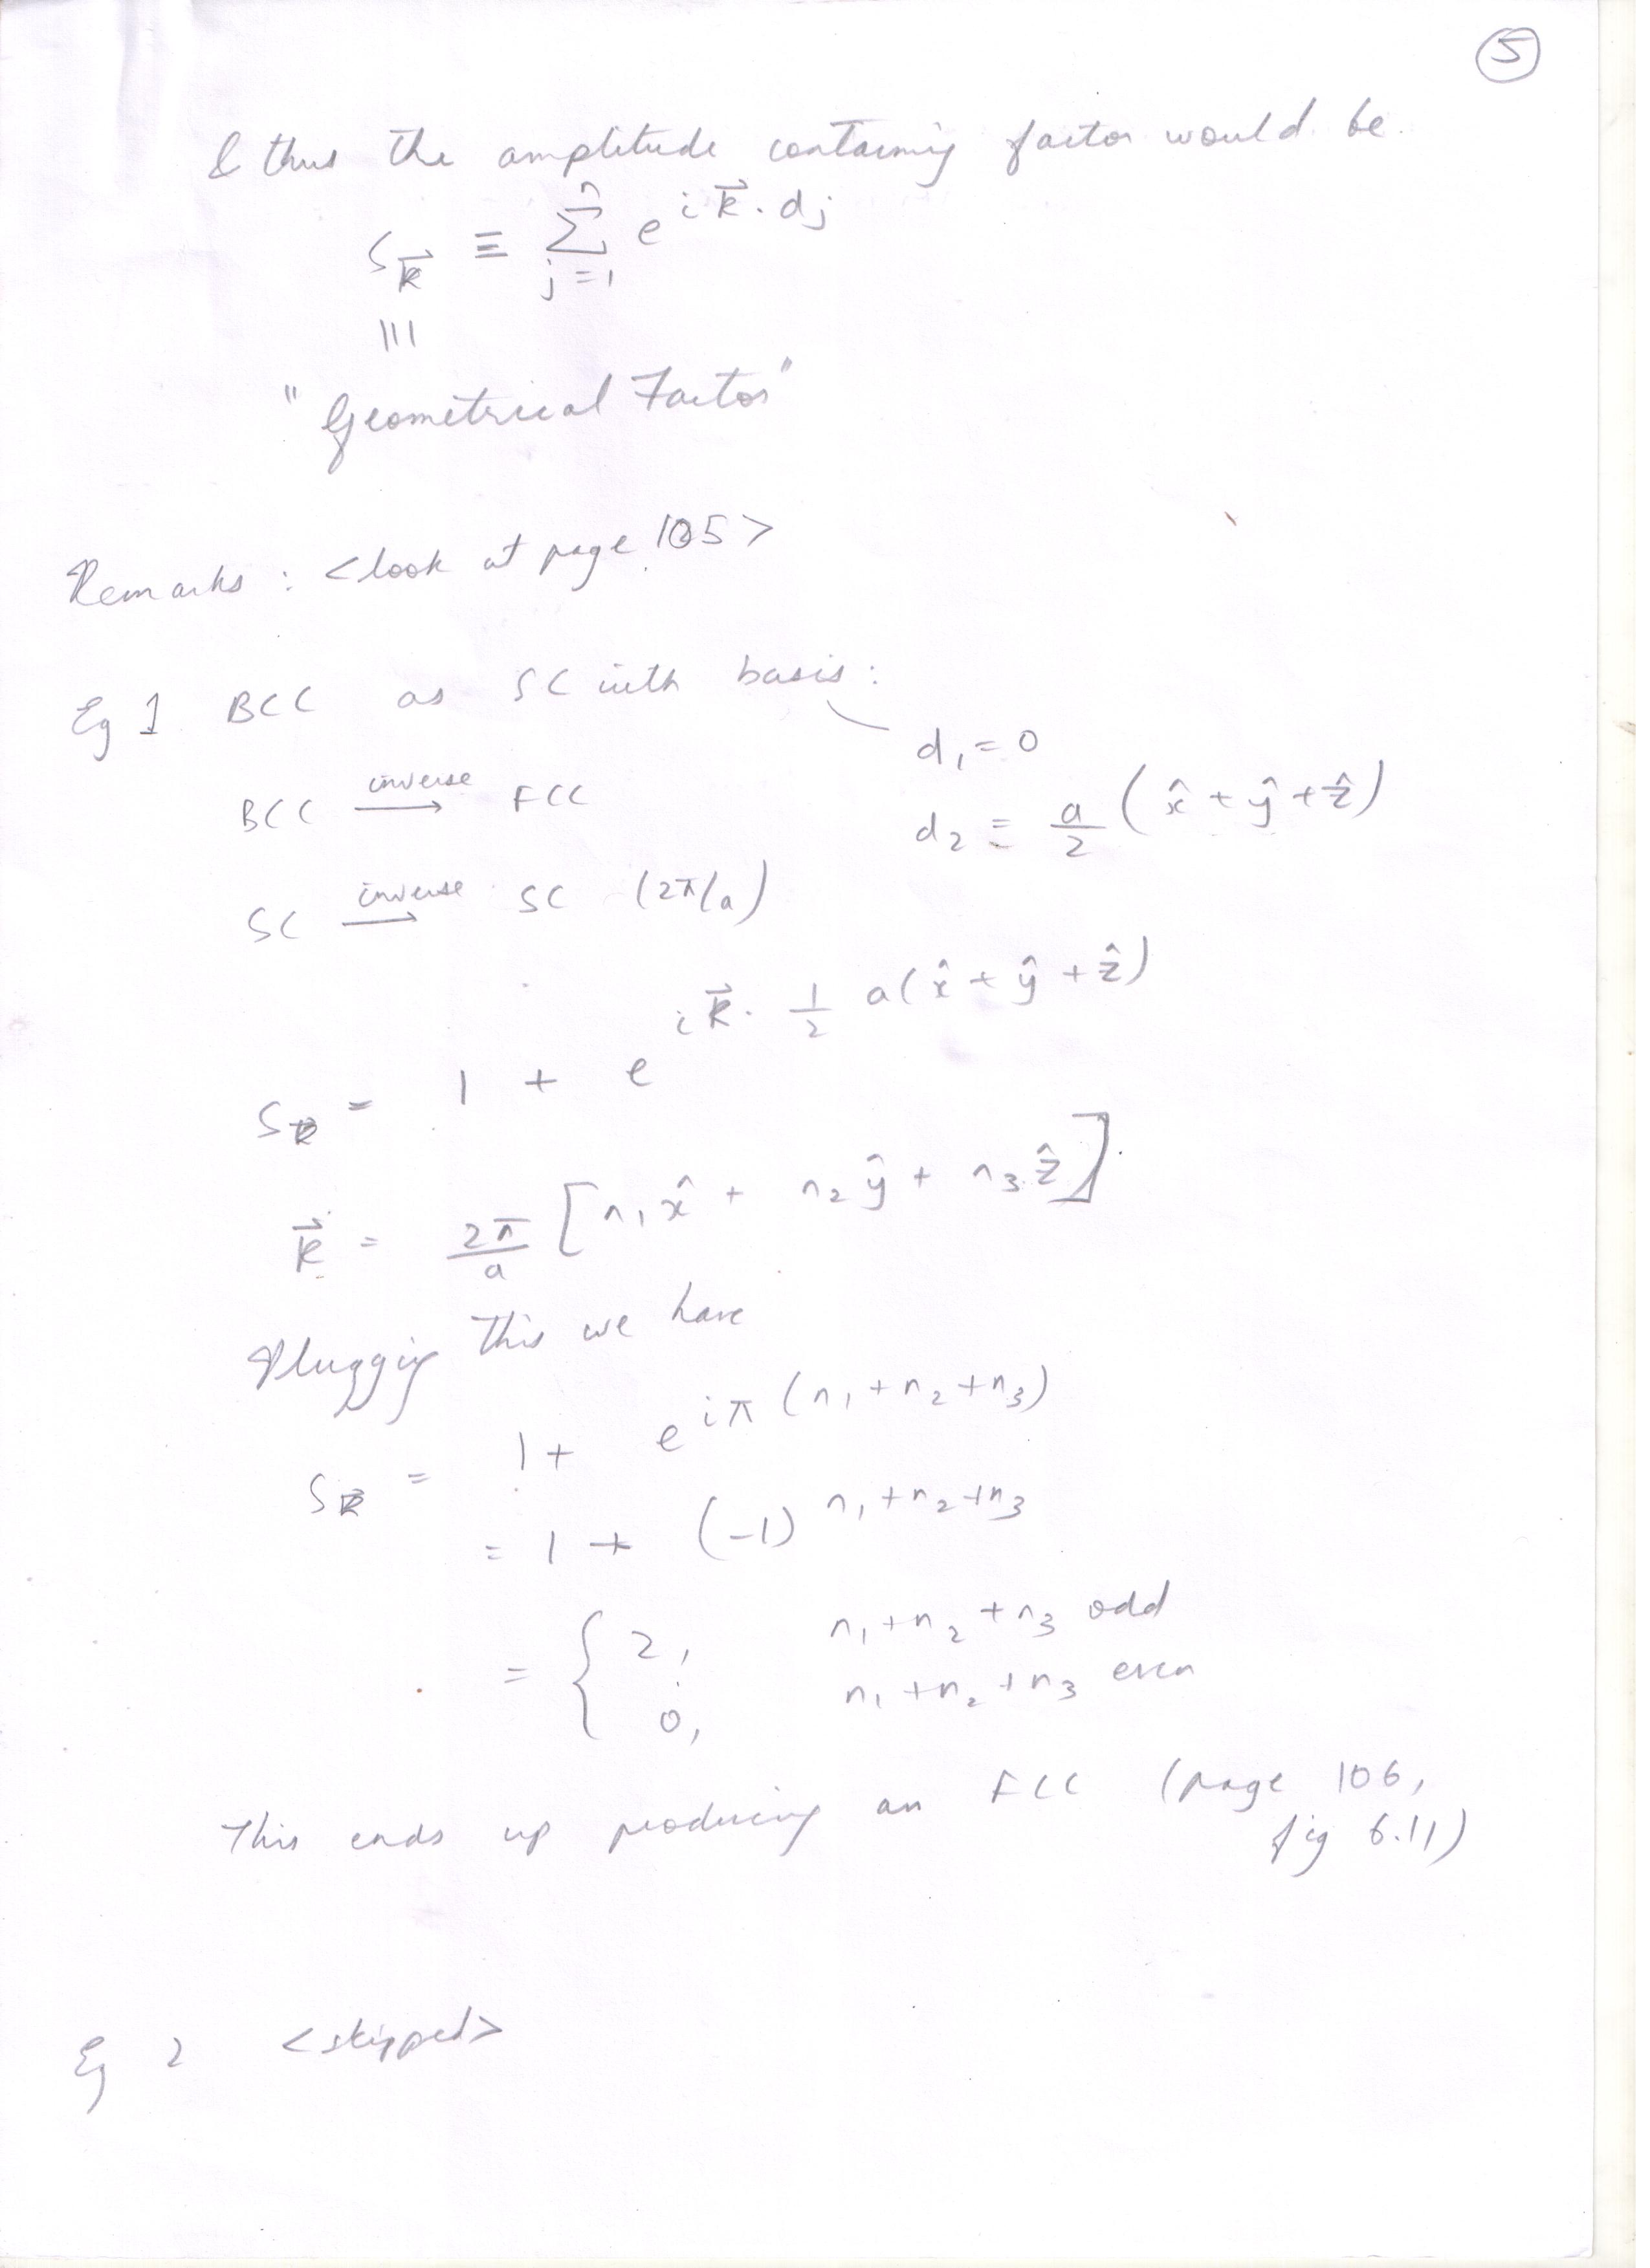 5
& thus the amplitude containing factor would be
S_k⃗ ≡ Σ_{j=1}^{n} e^{i k⃗ . dj}
|||
"Geometrical Factor"
Remarks : <look at page 105>
Eg 1 BCC as SC with basis :
d₁ = 0
BCC inverse → FCC
d₂ = a/2 (x̂ + ŷ + ẑ)
SC inverse → SC (2π/a)
S_k⃗ = 1 + e^{i k⃗ . 1/2 a(x̂ + ŷ + ẑ)}
k⃗ = 2π/a [n₁x̂ + n₂ŷ + n₃ẑ]
Plugging this we have
S_k⃗ = 1 + e^{iπ (n₁+n₂+n₃)}
= 1 + (-1)^{n₁+n₂+n₃}
= { 2, n₁+n₂+n₃ odd
0, n₁+n₂+n₃ even
This ends up producing an FCC (page 106,
fig 6.11)
Eg 2 <skipped>